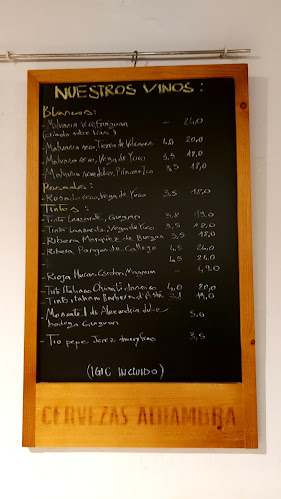 NUESTROS VINOS:
Blancos:
- Malvasia seco, Guiguan - 24,0
(criado sobre lias)
- Malvasia seco, Tierra de Volcanes 4,0 20,0
- Malvasia seco, Vega de Yuco 3,5 18,0
- Malvasia semidulce, 3,5 18,0
Rosados:
- Rosado seco, Vega de Yuco 3,5 18,0
Tintos:
- Tinto Lanzarote, Guiguan 3,8 19,0
- Tinto Lanzarote, Vega de Yuco 3,5 18,0
- Ribera Marquez de Burgos 3,5 18,0
- Ribera Pago de Callejo 4,5 24,0
- 4,5 24,0
- Rioja Magnum - 49,0
- Tinto Italiano Chianti classico 4,0 20,0
- Tinto italiano Barbera d'Asti 19,0
- Moscatel de Alexandria dulce 5,0
bodega Guiguan
- Tio pepe Jerez 3,5
(IGIC INCLUIDO)
CERVEZAS ALHAMBRA